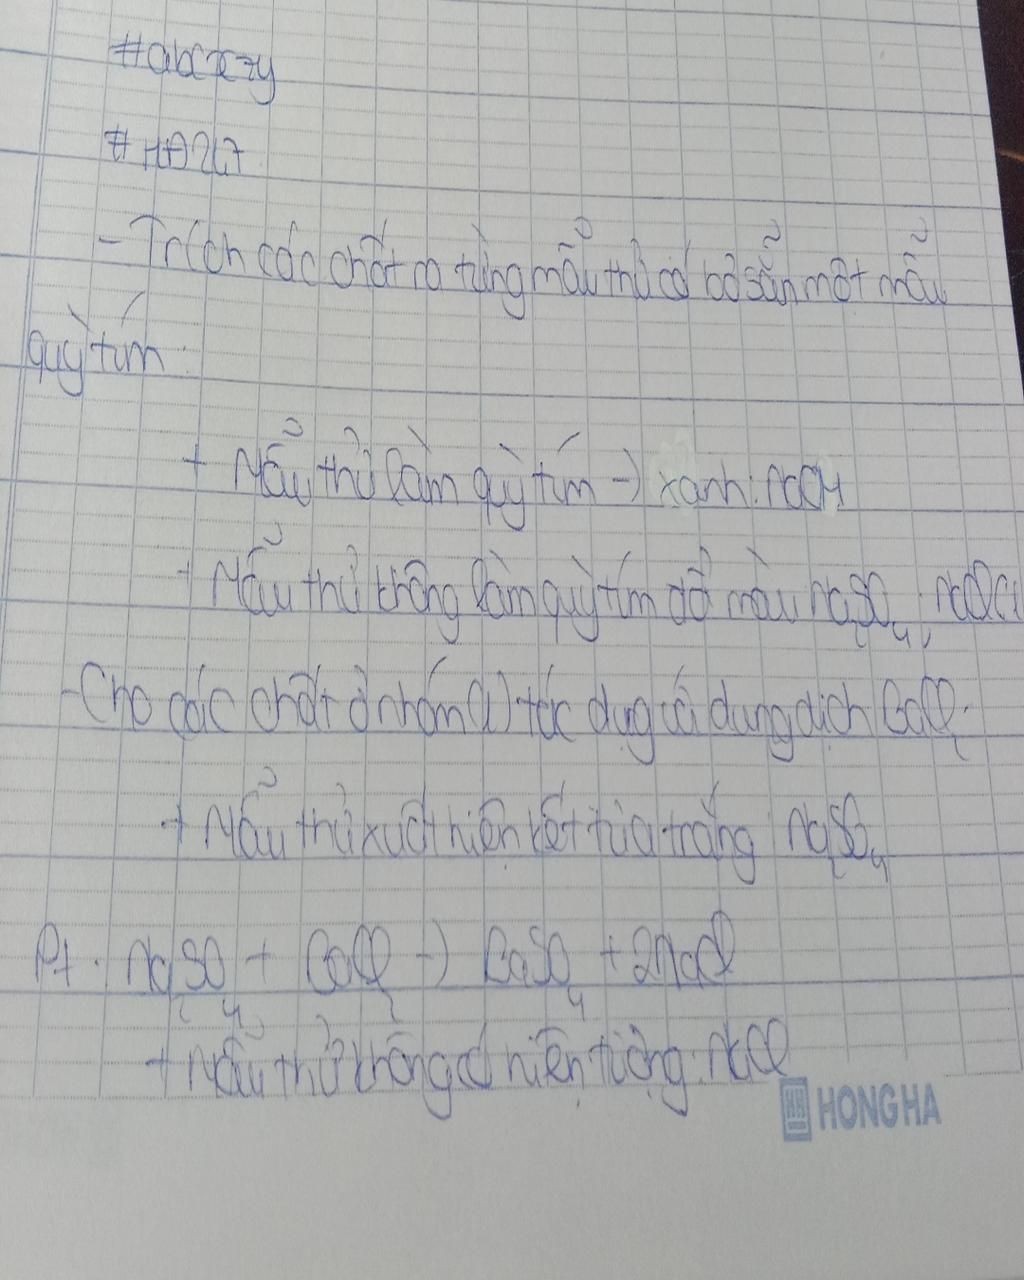 #abcxzy
#HA247
- Trích các chất ra từng mẫu thử có bỏ sẵn một mẫu
quỳ tím
+ Mẩu thử làm quỳ tím → xanh: NaOH
+ Mẫu thử không làm quỳ tím đổi màu Na₂SO₄,
- Cho các chất ở nhóm (1) tác dụng với dung dịch BaCl₂
+ Mẩu thử xuất hiện kết tủa trắng Na₂SO₄
Pt. Na₂SO₄ + BaCl₂ → BaSO₄ + 2NaCl
+ Mẫu thử không có hiện tượng: NaCl
HONG HA